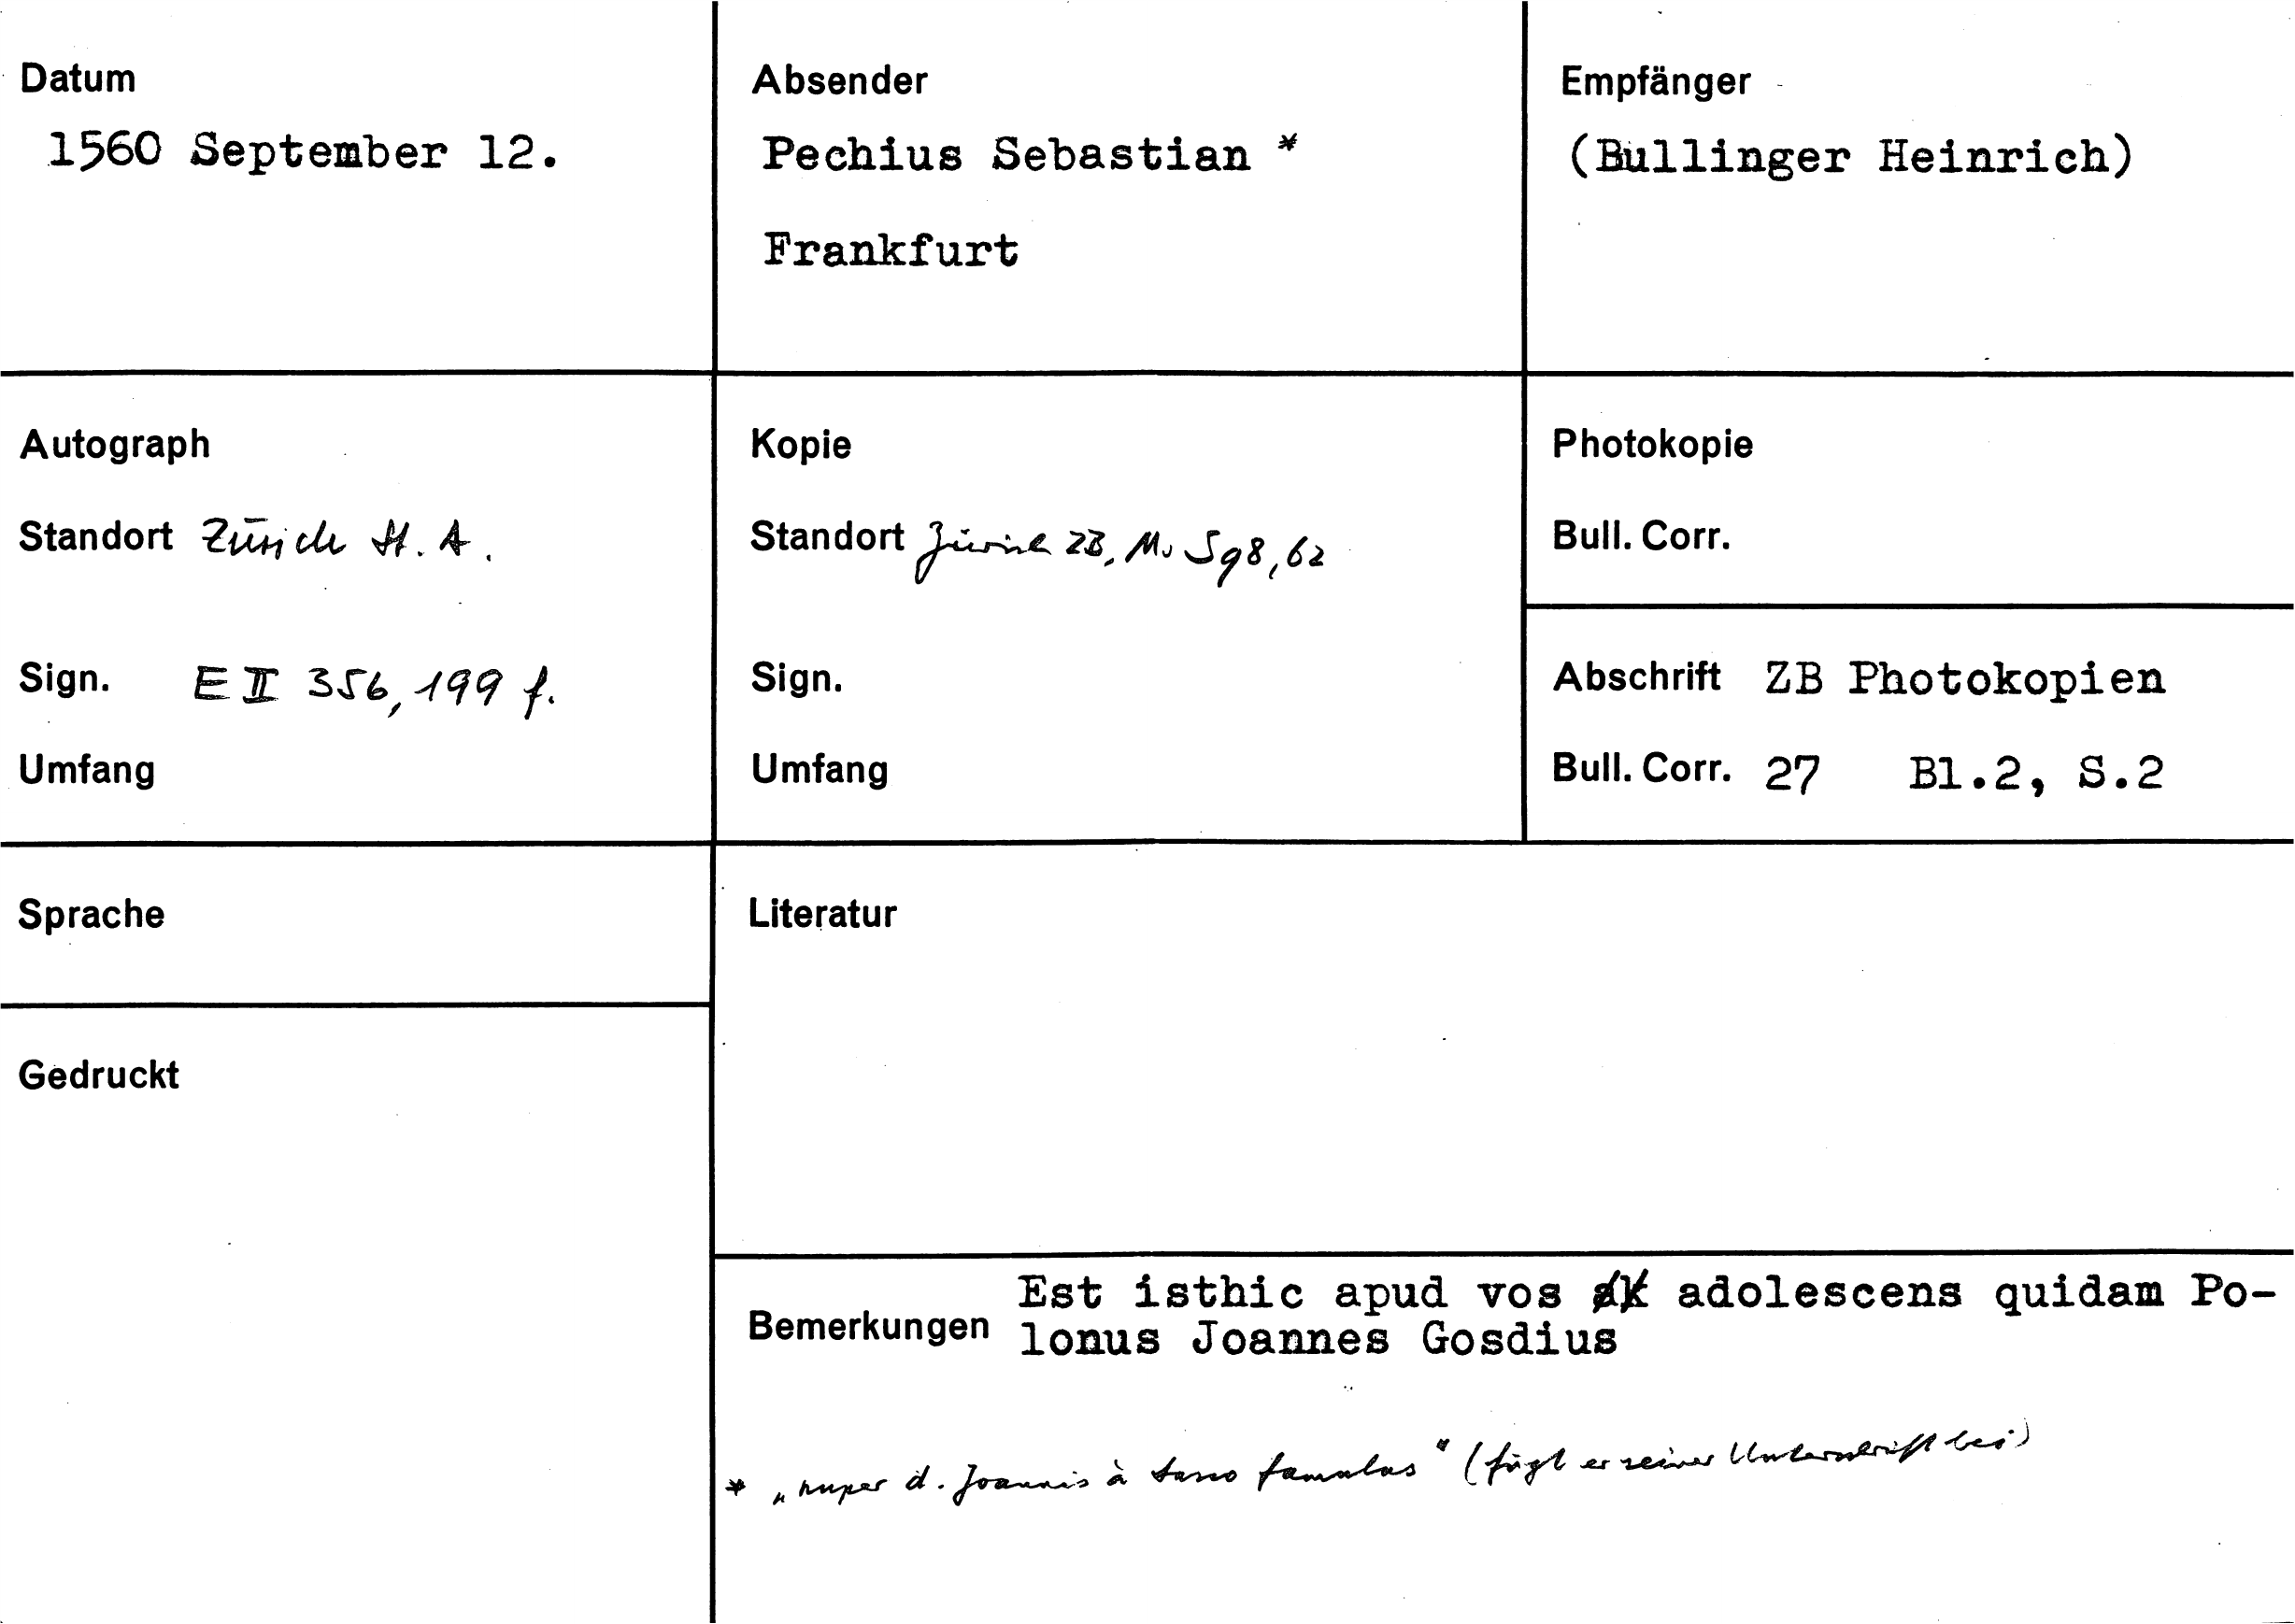 Datum
1560 September 12.
Absender
Pechius Sebastian *
Frankfurt
Empfänger
(Bullinger Heinrich)
Autograph
Standort Zürich St. A.
Sign. E II 356, 199 f.
Umfang
Kopie
Standort Zürich ZB, Ms S 98, 62
Sign.
Umfang
Photokopie
Bull. Corr.
Abschrift ZB Photokopien
Bull. Corr. 27 Bl.2, S.2
Sprache
Gedruckt
Literatur
Bemerkungen
Est isthic apud vos adolescens quidam Po-
lonus Joannes Gosdius
* „nuper d. Joannis à famulus" (fügt er seiner Unterschrift bei)